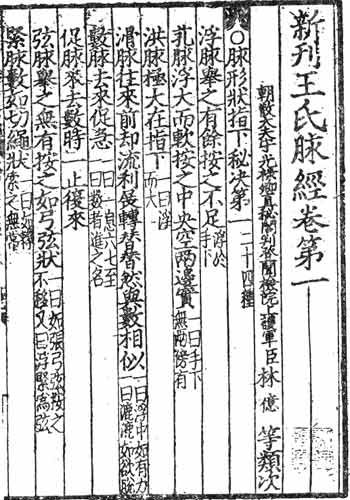 新刊王氏脉經卷第一
朝散大夫守光祿卿直秘閣判登聞檢院上護軍臣林億等類次
○脉形狀指下秘決第一二十四種
浮脉舉之有餘按之不足浮於手下
芤脉浮大而軟按之中央空兩邊實一曰手下無兩傍有
洪脉極大在指下一曰浮而大
滑脉往來前却流利展轉替替然與數相似一曰浮中如有力一曰漉漉如欲脫
數脉去來促急一曰一息六七至一曰數者進之名
促脉來去數時一止復來
弦脉舉之無有按之如弓弦狀一曰如張弓弦按之不移又曰浮緊爲弦
緊脉數如切繩狀一曰如轉索之無常